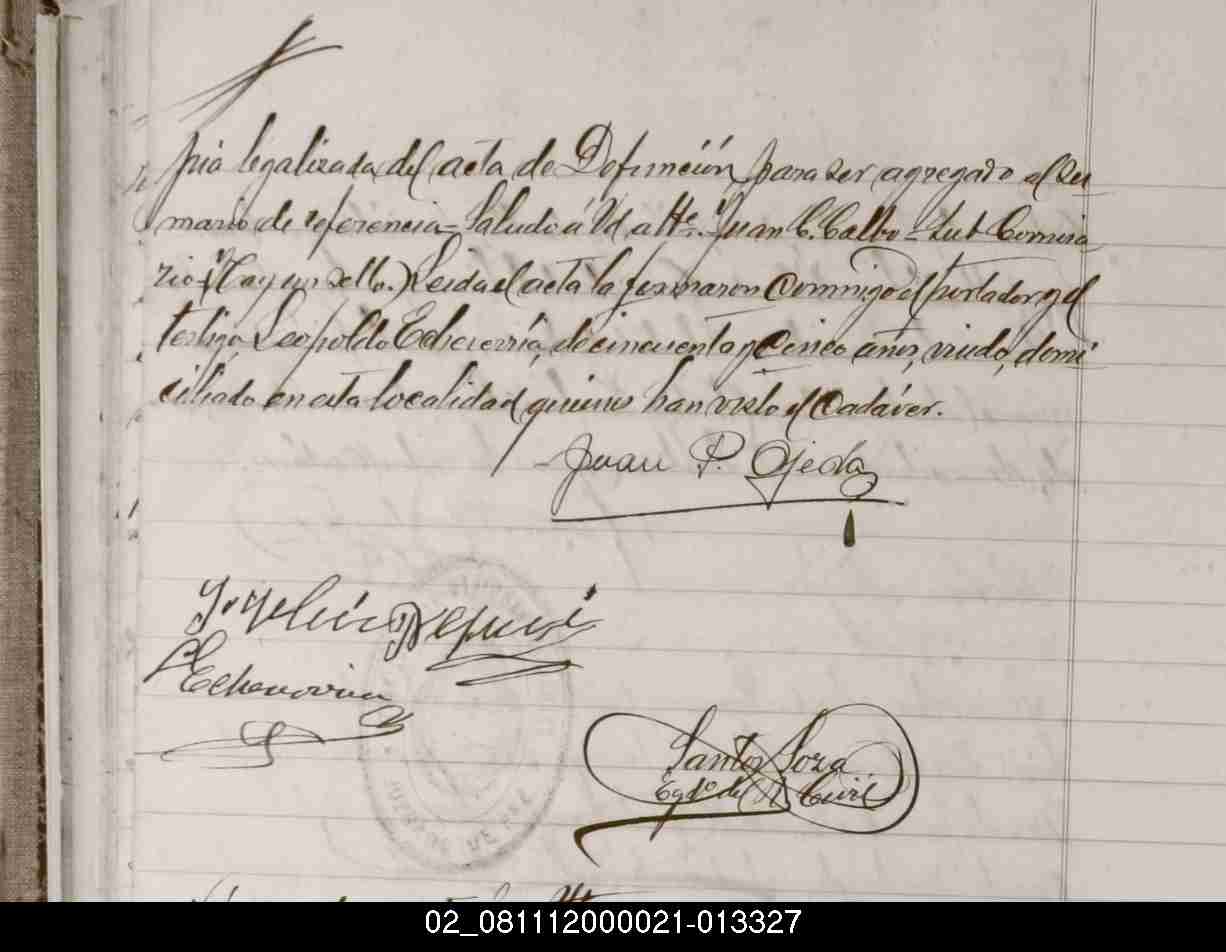 pia legalizada del acta de Defunción, para ser agregado al Su
mario de referencia - Saludo á Vd atte. Juan C. Calbo - Sub Comisa
rio (Hay un sello.) Leida el acta la firmaron Conmigo el portador y el
testigo Leopoldo Echeverría, de cincuenta y Cinco años, viudo, domi
ciliado en esta localidad quienes han visto el Cadáver.
Juan P. Ojeda
Echeverria
Santos Soza
Egdo. del R. Civil
JUZGADO DE PAZ
02_081112000021-013327